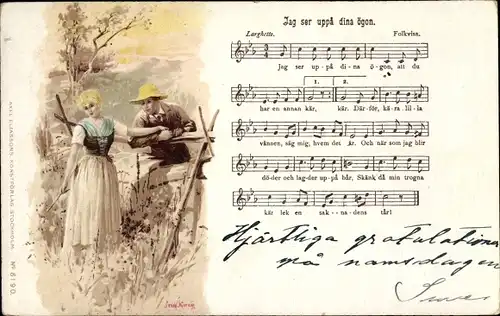 Jag ser uppå dina ögon.
Larghetto. Folkvisa.
Jag ser up-på di-na ö-gon, att du
1. 2.
har en annan kär, kär. Där-för, kä-ra lil-la
vännen, säg mig, hvem det är. Och när som jag blir
dö-der och lag-der up-på bår, Skänk då min trogna
kär lek en sak-na-dens tår!
Hjärtliga gratulationer
på namsdagen
AXEL ELIASSONS KONSTFÖRLAG STOCKHOLM
Nº 6190.